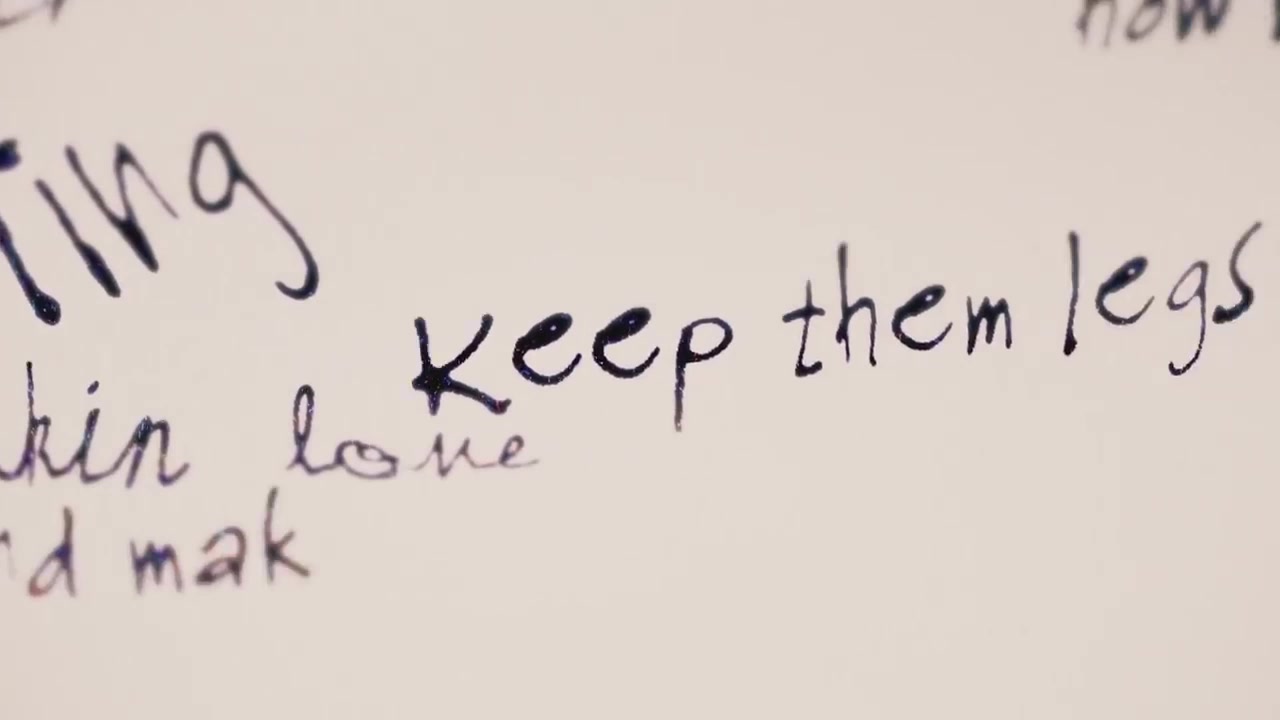 how
ing
Keep them legs
kin love
d mak